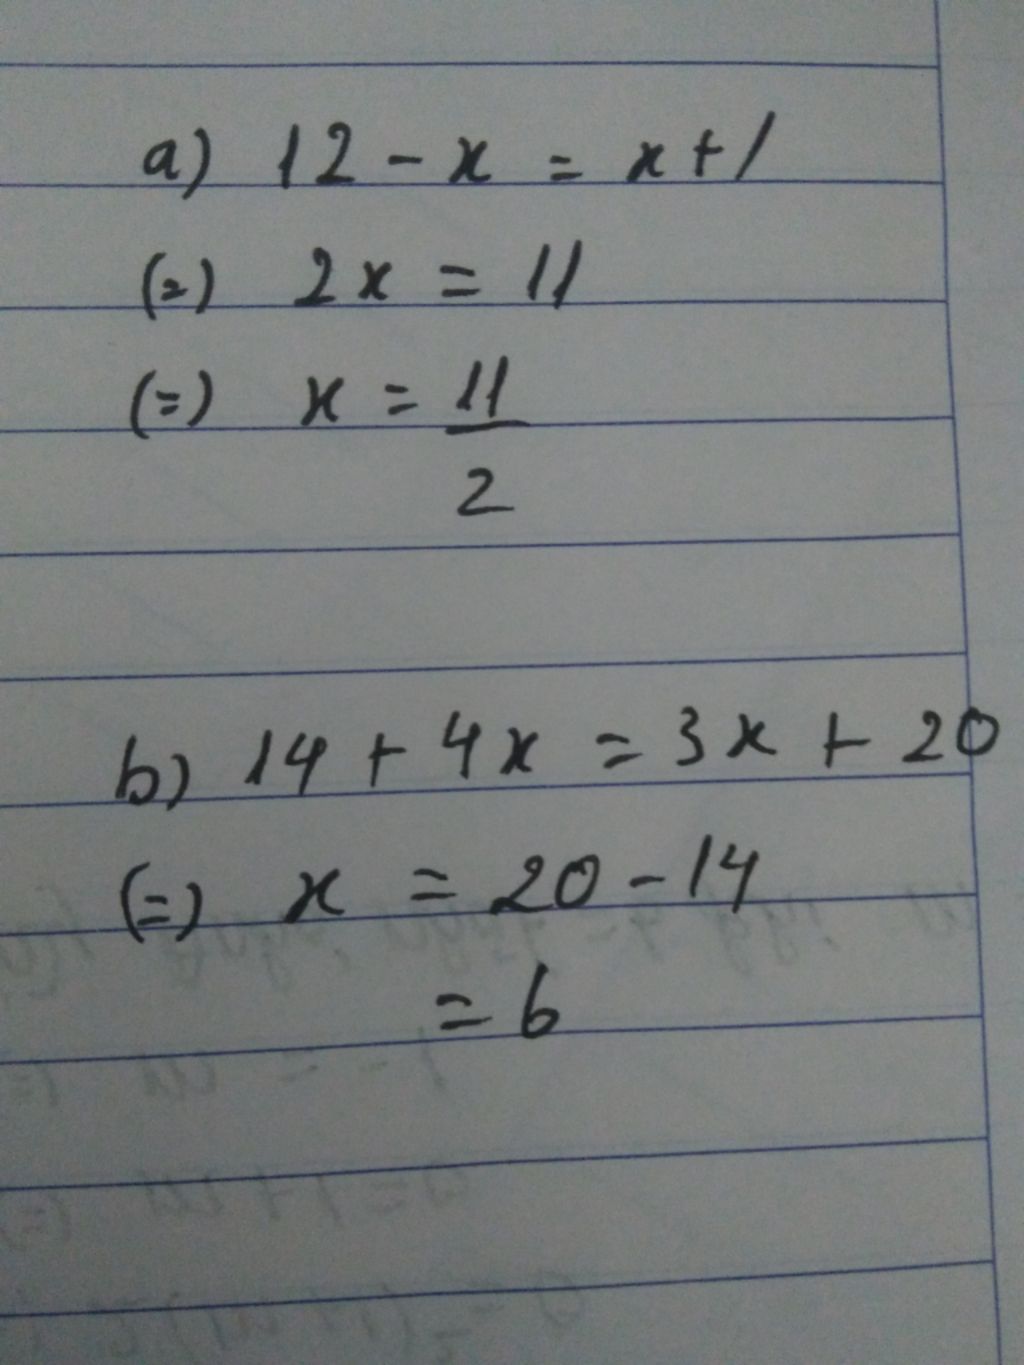 a) 12 - x = x + 1
(=) 2x = 11
(=) x = 11/2
b) 14 + 4x = 3x + 20
(=) x = 20 - 14
= 6